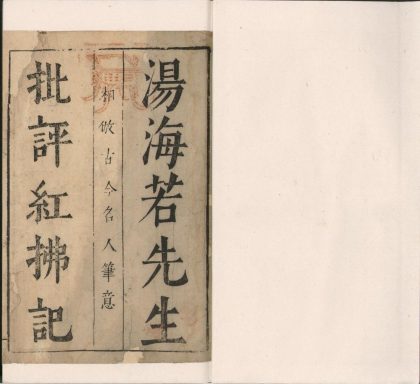 湯海若先生
相倣古今名人筆意
批評紅拂記